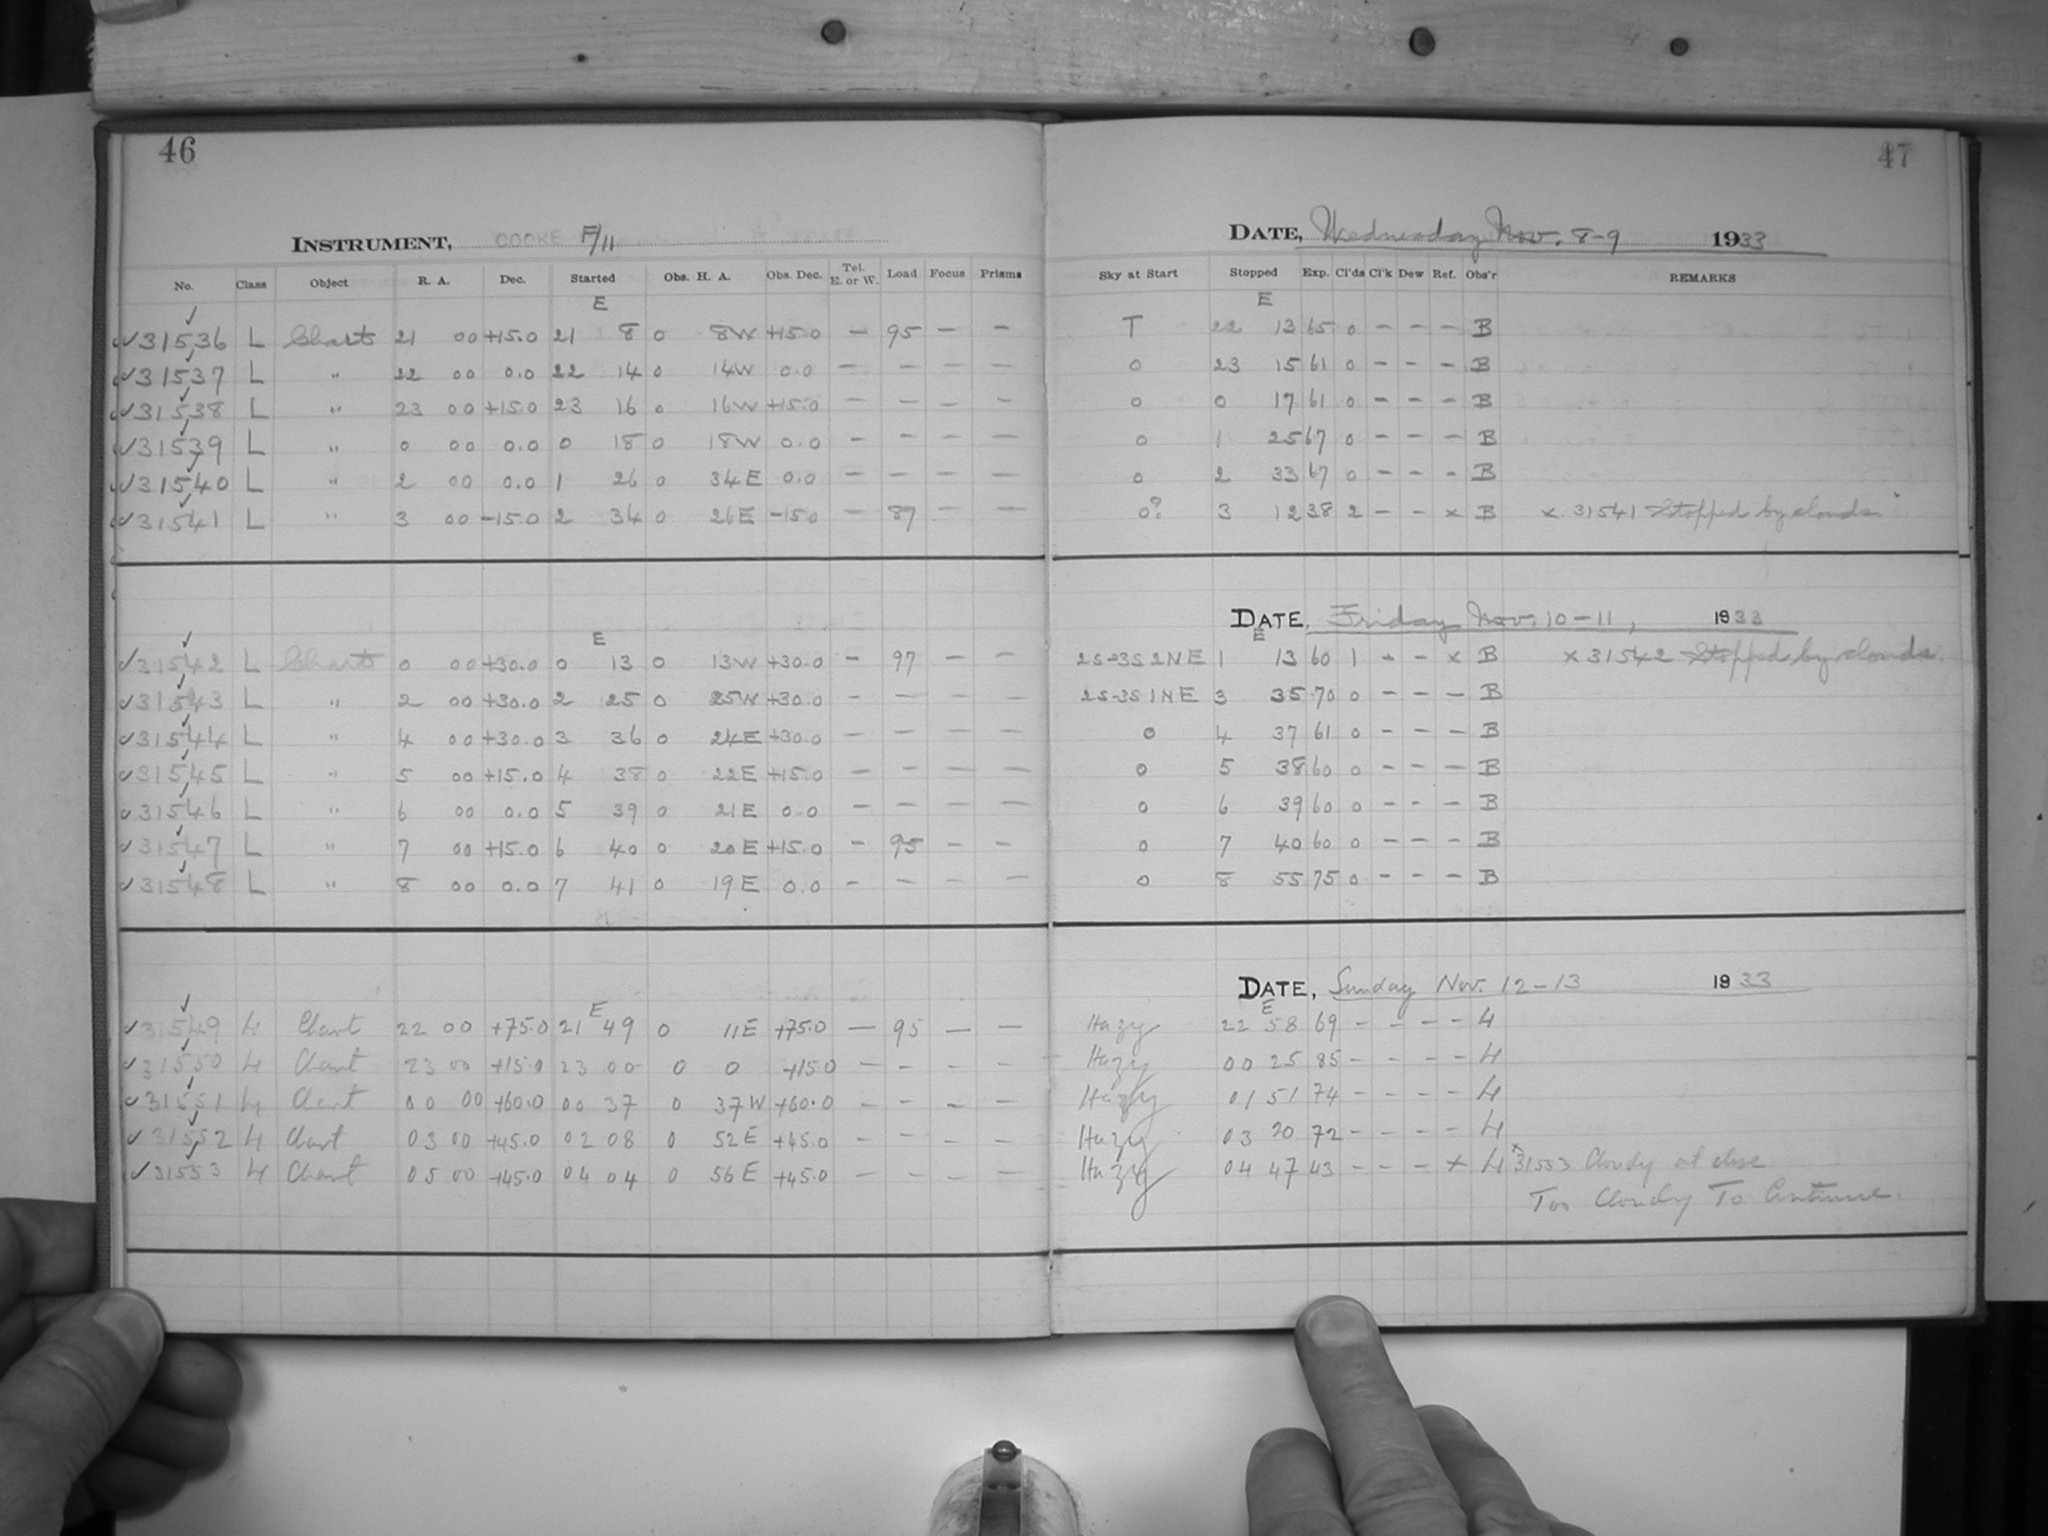 46
47
INSTRUMENT, COOKE F/11
DATE, Wednesday Nov. 8-9 1933
No. Class Object R. A. Dec. Started Obs. H. A. Obs. Dec. Tel. E. or W. Load Focus Prisms Sky at Start Stopped Exp. Cl'ds Cl'k Dew Ref. Obs'r REMARKS
E E
✓31536 L Chart 21 00 +15.0 21 8 0 8W +15.0 – 95 – – T 22 13 65 0 – – – B
✓31537 L " 22 00 0.0 22 14 0 14W 0.0 – – – – 0 23 15 61 0 – – – B
✓31538 L " 23 00 +15.0 23 16 0 16W +15.0 – – – – 0 0 17 61 0 – – – B
✓31539 L " 0 00 0.0 0 18 0 18W 0.0 – – – – 0 1 25 67 0 – – – B
✓31540 L " 2 00 0.0 1 26 0 34E 0.0 – – – – 0 2 33 67 0 – – – B
✓31541 L " 3 00 -15.0 2 34 0 26E -15.0 – 87 – – 0? 3 12 38 2 – – x B x 31541 Stopped by clouds
DATE, Friday Nov. 10-11, 1933
E E
✓31542 L Chart 0 00 +30.0 0 13 0 13W +30.0 – 97 – – 2S-3S2NE 1 13 60 1 – – x B x 31542 Stopped by clouds.
✓31543 L " 2 00 +30.0 2 25 0 25W +30.0 – – – – 2S-3S1NE 3 35 70 0 – – – B
✓31544 L " 4 00 +30.0 3 36 0 24E +30.0 – – – – 0 4 37 61 0 – – – B
✓31545 L " 5 00 +15.0 4 38 0 22E +15.0 – – – – 0 5 38 60 0 – – – B
✓31546 L " 6 00 0.0 5 39 0 21E 0.0 – – – – 0 6 39 60 0 – – – B
✓31547 L " 7 00 +15.0 6 40 0 20E +15.0 – 95 – – 0 7 40 60 0 – – – B
✓31548 L " 8 00 0.0 7 41 0 19E 0.0 – – – – 0 8 55 75 0 – – – B
DATE, Sunday Nov. 12-13 1933
E E
✓31549 L Chart 22 00 +75.0 21 49 0 11E +75.0 – 95 – – Hazy 22 58 69 – – – – H
✓31550 L Chart 23 00 +15.0 23 00 0 0 +15.0 – – – – Hazy 00 25 85 – – – – H
✓31551 L Chart 00 00 +60.0 00 37 0 37W +60.0 – – – – Hazy 01 51 74 – – – – H
✓31552 L Chart 03 00 +45.0 02 08 0 52E +45.0 – – – – Hazy 03 20 72 – – – – H
✓31553 L Chart 05 00 +45.0 04 04 0 56E +45.0 – – – – Hazy 04 47 43 – – – x H x31553 Cloudy at close
Too Cloudy To Continue.